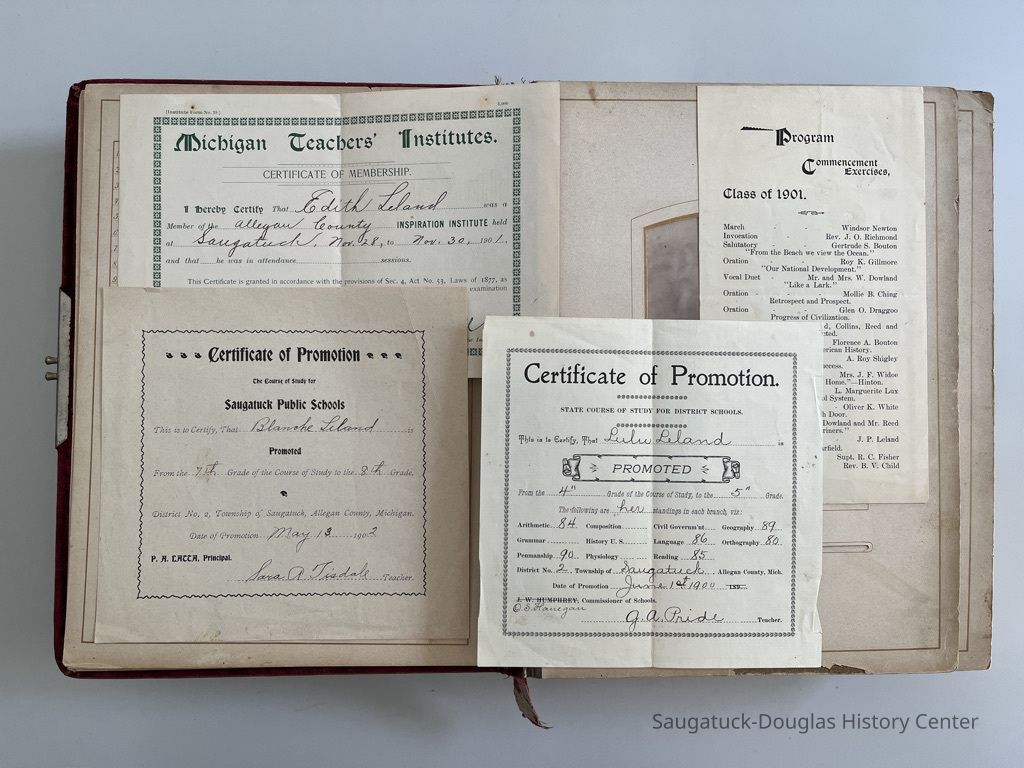 [Institute Form No. 10.]
Michigan Teachers' Institutes.
CERTIFICATE OF MEMBERSHIP.
I Hereby Certify That Edith Leland was a
Member of the Allegan County INSPIRATION INSTITUTE held
at Saugatuck, Nov. 28, to Nov. 30, 1901.
and that he was in attendance sessions.
This Certificate is granted in accordance with the provisions of Sec. 4, Act No. 53, Laws of 1877, as
examination
Certificate of Promotion
The Course of Study for
Saugatuck Public Schools
This is to Certify, That Blanche Leland is
Promoted
From the 7th Grade of the Course of Study to the 8th Grade.
District No. 2, Township of Saugatuck, Allegan County, Michigan.
Date of Promotion May 13 1902
P. A. LATTA, Principal.
Sara A. Tisdale Teacher.
Program
Commencement
Exercises,
Class of 1901.
March - Windsor Newton
Invocation Rev. J. O. Richmond
Salutatory - Gertrude S. Bouton
"From the Beach we view the Ocean."
Oration - Roy K. Gillmore
"Our National Development."
Vocal Duet - Mr. and Mrs. W. Dowland
"Like a Lark."
Oration - Mollie B. Ching
Retrospect and Prospect.
Oration - Glen O. Draggoo
Progress of Civilization.
d, Collins, Reed and
cted.
Florence A. Bouton
erican History.
A. Roy Shigley
ccess.
Mrs. J. F. Widoe
Home."—Hinton.
L. Marguerite Lux
ol System.
- Oliver K. White
h Door.
Dowland and Mr. Reed
riners."
J. P. Leland
arfield.
Supt. R. C. Fisher
Rev. B. V. Child
Certificate of Promotion.
STATE COURSE OF STUDY FOR DISTRICT SCHOOLS.
This is to Certify, That Lulu Leland is
PROMOTED
From the 4" Grade of the Course of Study, to the 5" Grade.
The following are her standings in each branch, viz:
Arithmetic 84 Composition Civil Governm'nt Geography 89
Grammar History U. S. Language 86 Orthography 80
Penmanship 90 Physiology Reading 85
District No. 2 Township of Saugatuck Allegan County, Mich.
Date of Promotion June 1st 1900 189
J. W. HUMPHREY, Commissioner of Schools.
G. A. Pride Teacher.
Saugatuck-Douglas History Center